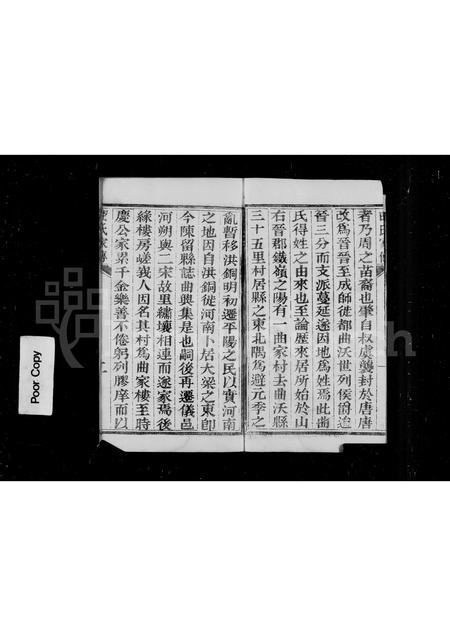 者乃周之苗裔也肇自叔虞襲封於唐唐
改爲晉晉至成師徙都曲沃世列侯爵迨
晉三分而支派蔓延遂因地爲姓焉此曲
氏得姓之由來也至論歷來居所始於山
右晉郡鐵嶺之陽有一曲家村去曲沃縣
三十五里村居縣之東北隅爲避元季之
亂暫移洪銅明初遷平陽之民以實河南
之地因自洪銅徙河南卜居大梁之東卽
今陳留縣誌曲興集是也嗣後再遷儀邑
河朔與二宋故里繡壤相連而遂家焉後
緣樓房嵯峩人因名其村爲曲家樓至時
慶公家累千金樂善不倦躬列膠庠而以
氏家傳
一
二
Poor Copy